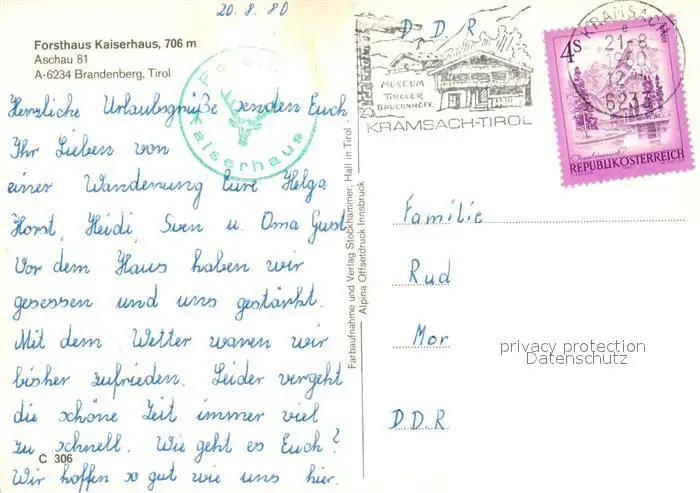 20.8.80
Forsthaus Kaiserhaus, 706 m
Aschau 81
A-6234 Brandenberg, Tirol
Herzliche Urlaubsgrüße senden Euch
Ihr Lieben von
einer Wanderung Eure Helga
Horst, Heidi, Sven u. Oma Gust
Vor dem Haus haben wir
gesessen und uns gestärkt.
Mit dem Wetter waren wir
bisher zufrieden. Leider vergeht
die schöne Zeit immer viel
zu schnell. Wie geht es Euch?
C 306
Wir hoffen so gut wie uns hier.
Kaiserhaus
Farbaufnahme und Verlag Stockhammer, Hall in Tirol
Alpina Offsetdruck Innsbruck
D D R
MUSEUM
TIROLER
BAUERNHÖFE
KRAMSACH-TIROL
KRAMSACH
21-8
1980
12
6233
4S
REPUBLIK ÖSTERREICH
Familie
Rud
Mor
DDR
privacy protection
Datenschutz